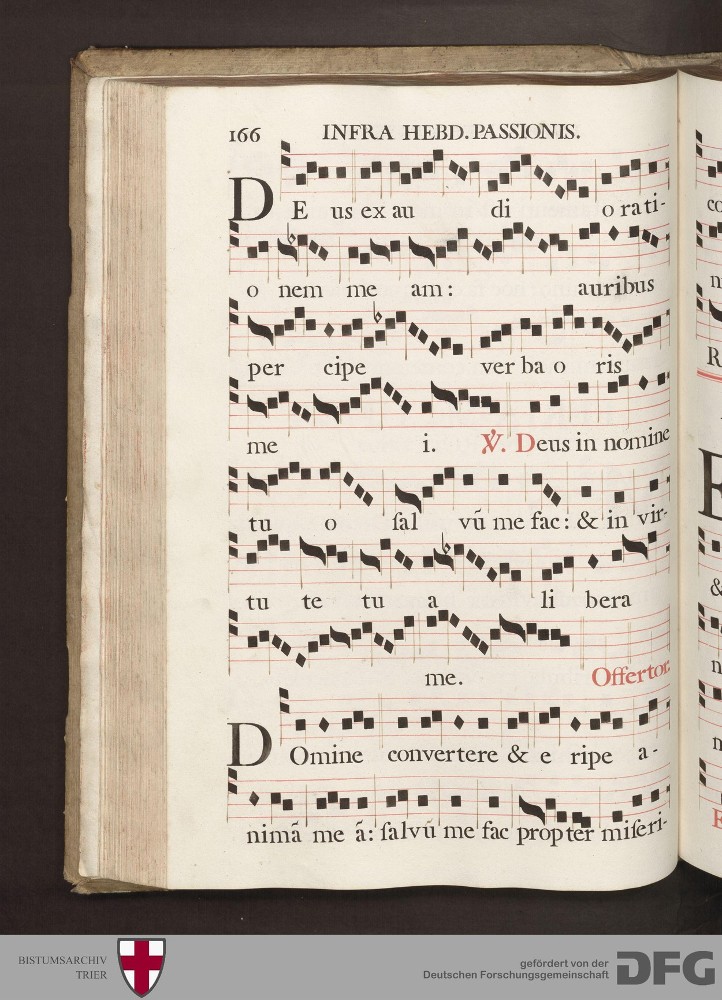 166 INFRA HEBD. PASSIONIS.
DE us ex au di o rati-
o nem me am: auribus
per cipe ver ba o ris
me i. ℣. Deus in nomine
tu o ſal vū me fac: & in vir-
tu te tu a li bera
me. Offertor.
DOmine convertere & e ripe a-
nimā me ā: ſalvū me fac propter miſeri-
BISTUMSARCHIV
TRIER
gefördert von der
Deutschen Forschungsgemeinschaft
DFG